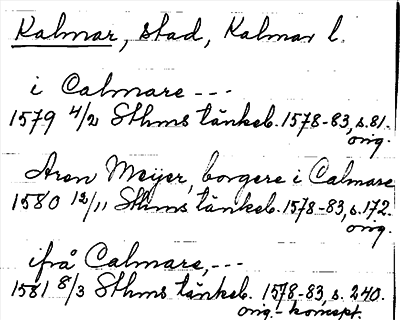 Kalmar, stad, Kalmar l.
i Calmare ---
1579 4/2 Sthms tänkeb. 1578-83, s. 81.
orig.
Aren Meijer, borgere i Calmare
1580 12/11 Sthms tänkeb. 1578-83, s. 172.
orig.
ifrå Calmare, ---
1581 8/3 Sthms tänkeb. 1578-83, s. 240.
orig.-koncept.